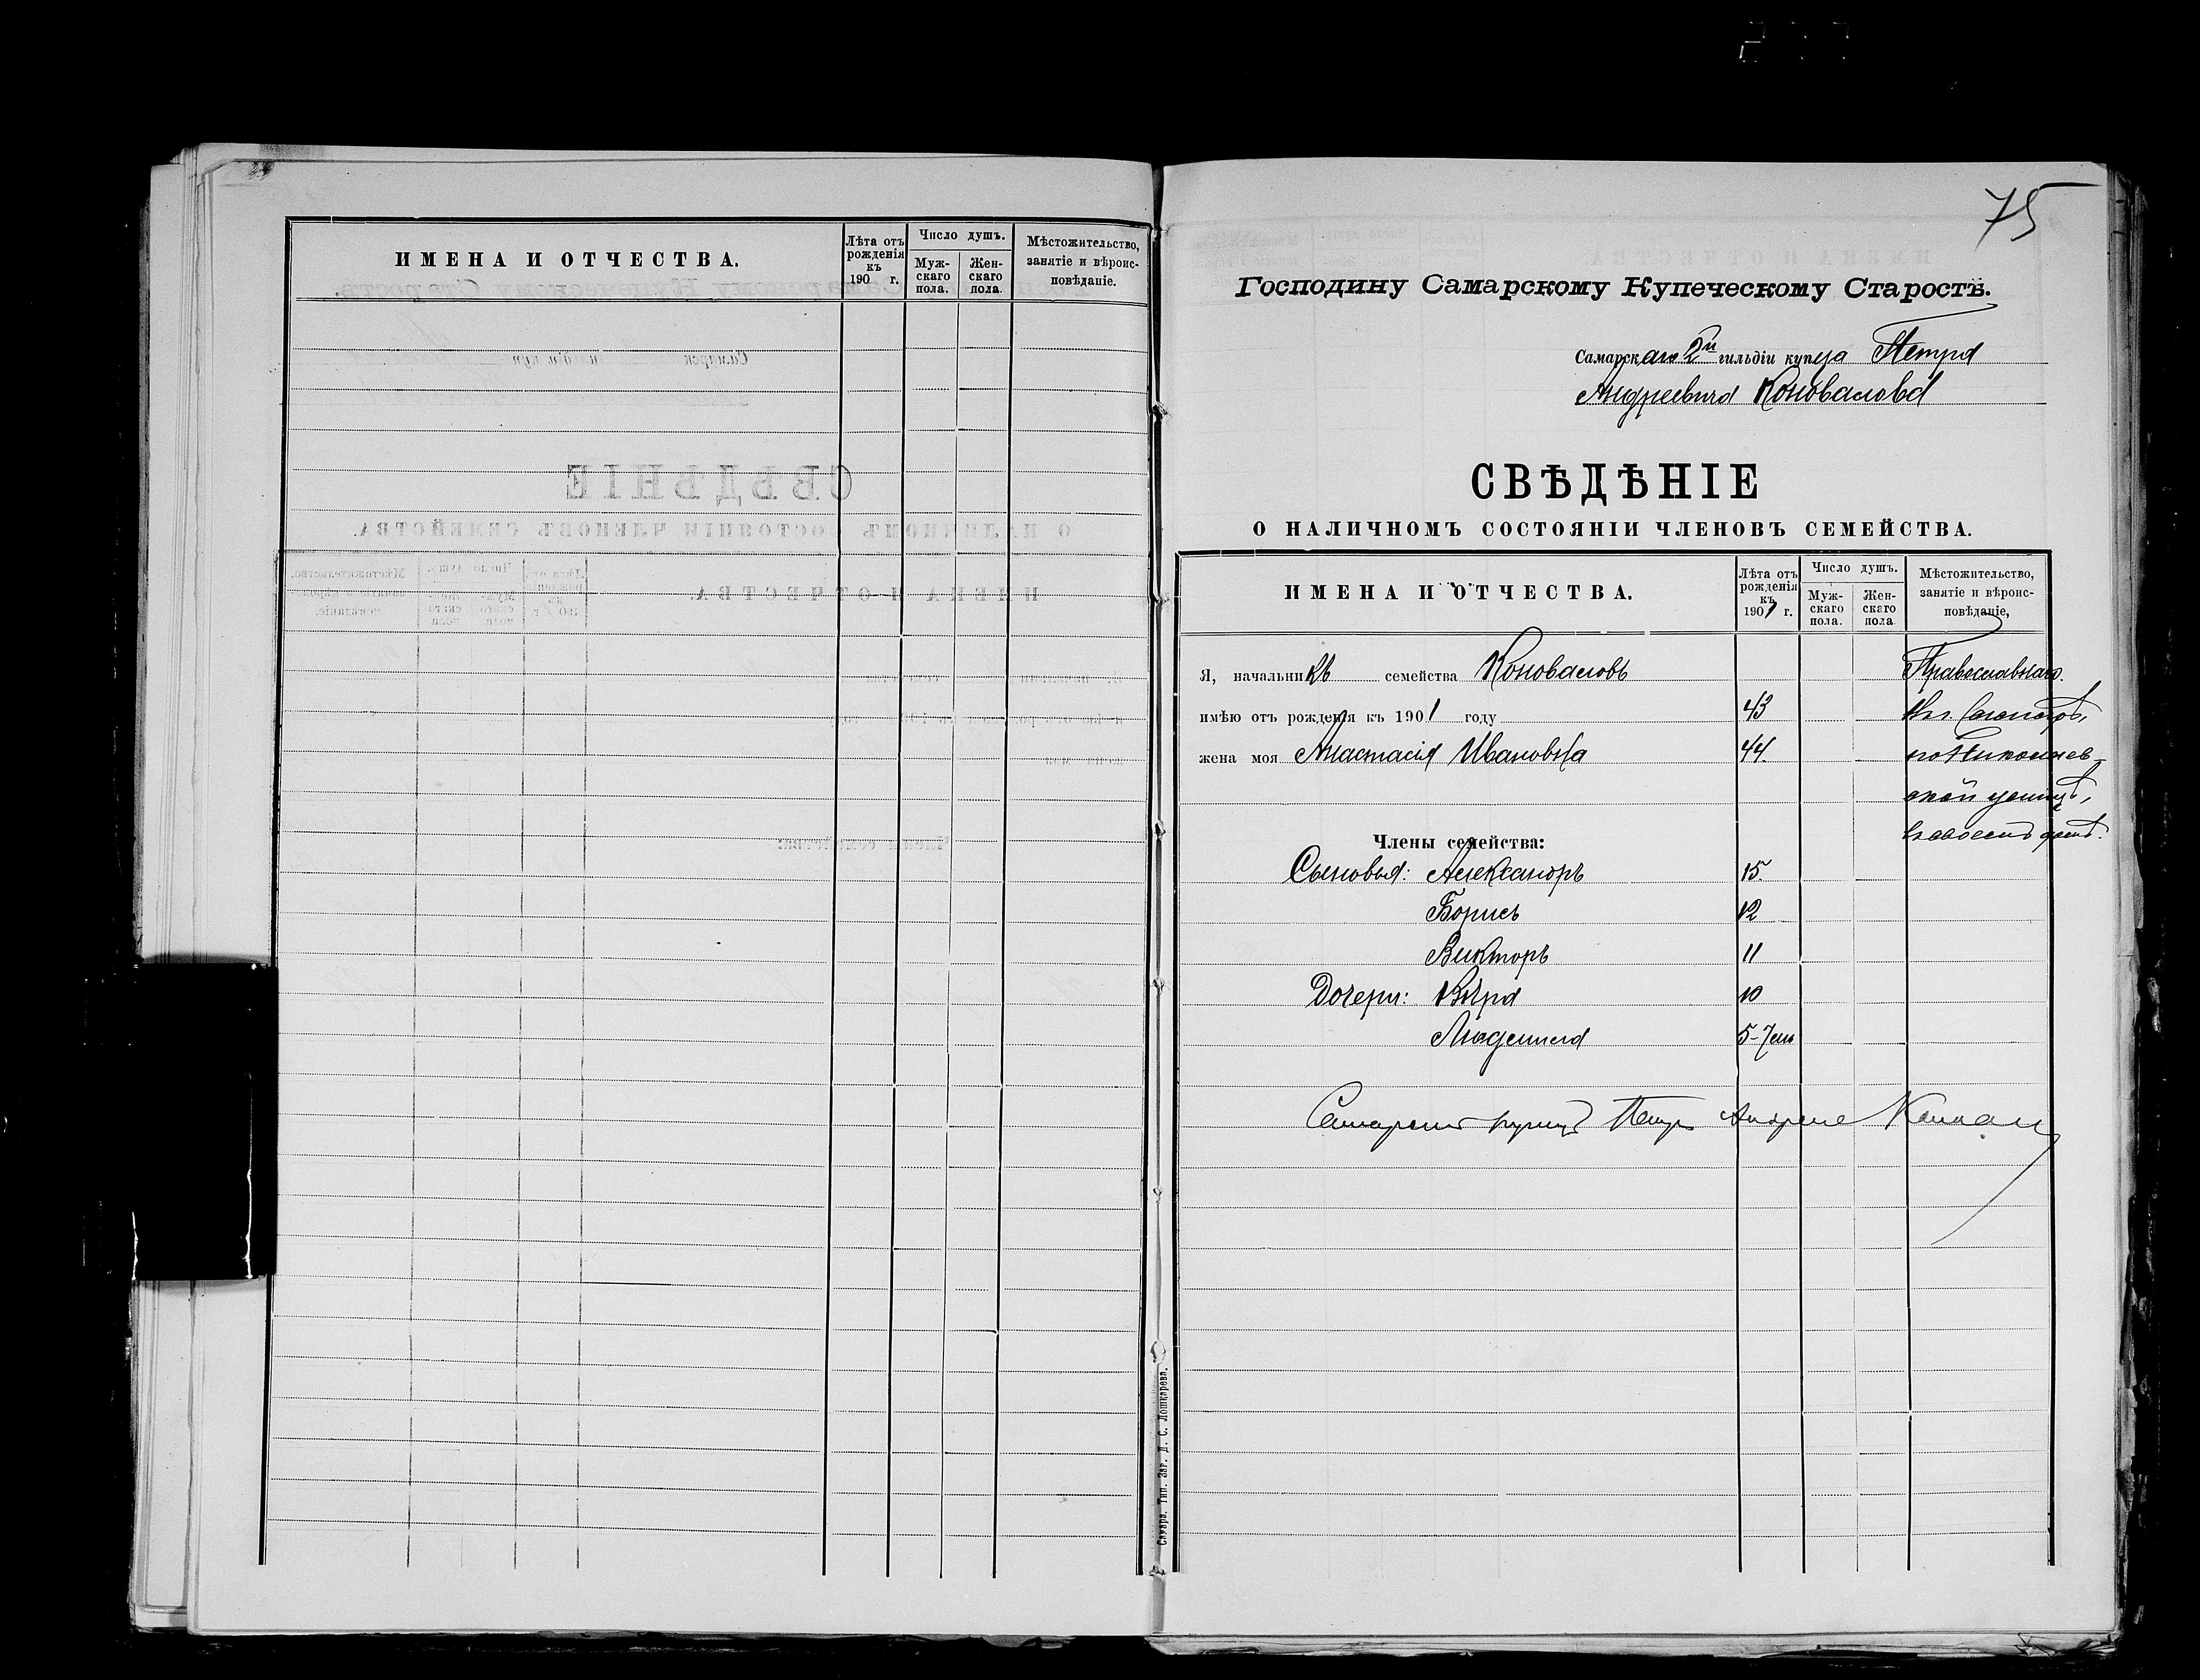 ИМЕНА И ОТЧЕСТВА.
Лѣта отъ рожденія къ 190 г.
Число душъ.
Мужскаго пола.
Женскаго пола.
Мѣстожительство, занятіе и вѣроисповѣданіе.
Самара. Тип. Заг. Л. С. Лошкарева.
75
Господину Самарскому Купеческому Старостѣ.
Самарскаго 2й гильдіи купца Петра
Андреевича Коновалова
СВѢДѢНІЕ
О НАЛИЧНОМЪ СОСТОЯНІИ ЧЛЕНОВЪ СЕМЕЙСТВА.
ИМЕНА И ОТЧЕСТВА.
Лѣта отъ рожденія къ 1901 г.
Число душъ.
Мужскаго пола.
Женскаго пола
Мѣстожительство, занятіе и вѣроисповѣданіе,
Я, начальникъ семейства Коноваловъ Православнаго.
имѣю отъ рожденія къ 1901 году 43
жена моя Анастасія Ивановна 44. по Николаев-
ской улицѣ,
Члены семейства:
Сыновья: Александръ 15.
Борисъ 12
Викторъ 11
Дочери: Вѣра 10
Людмила 5-7
Петръ